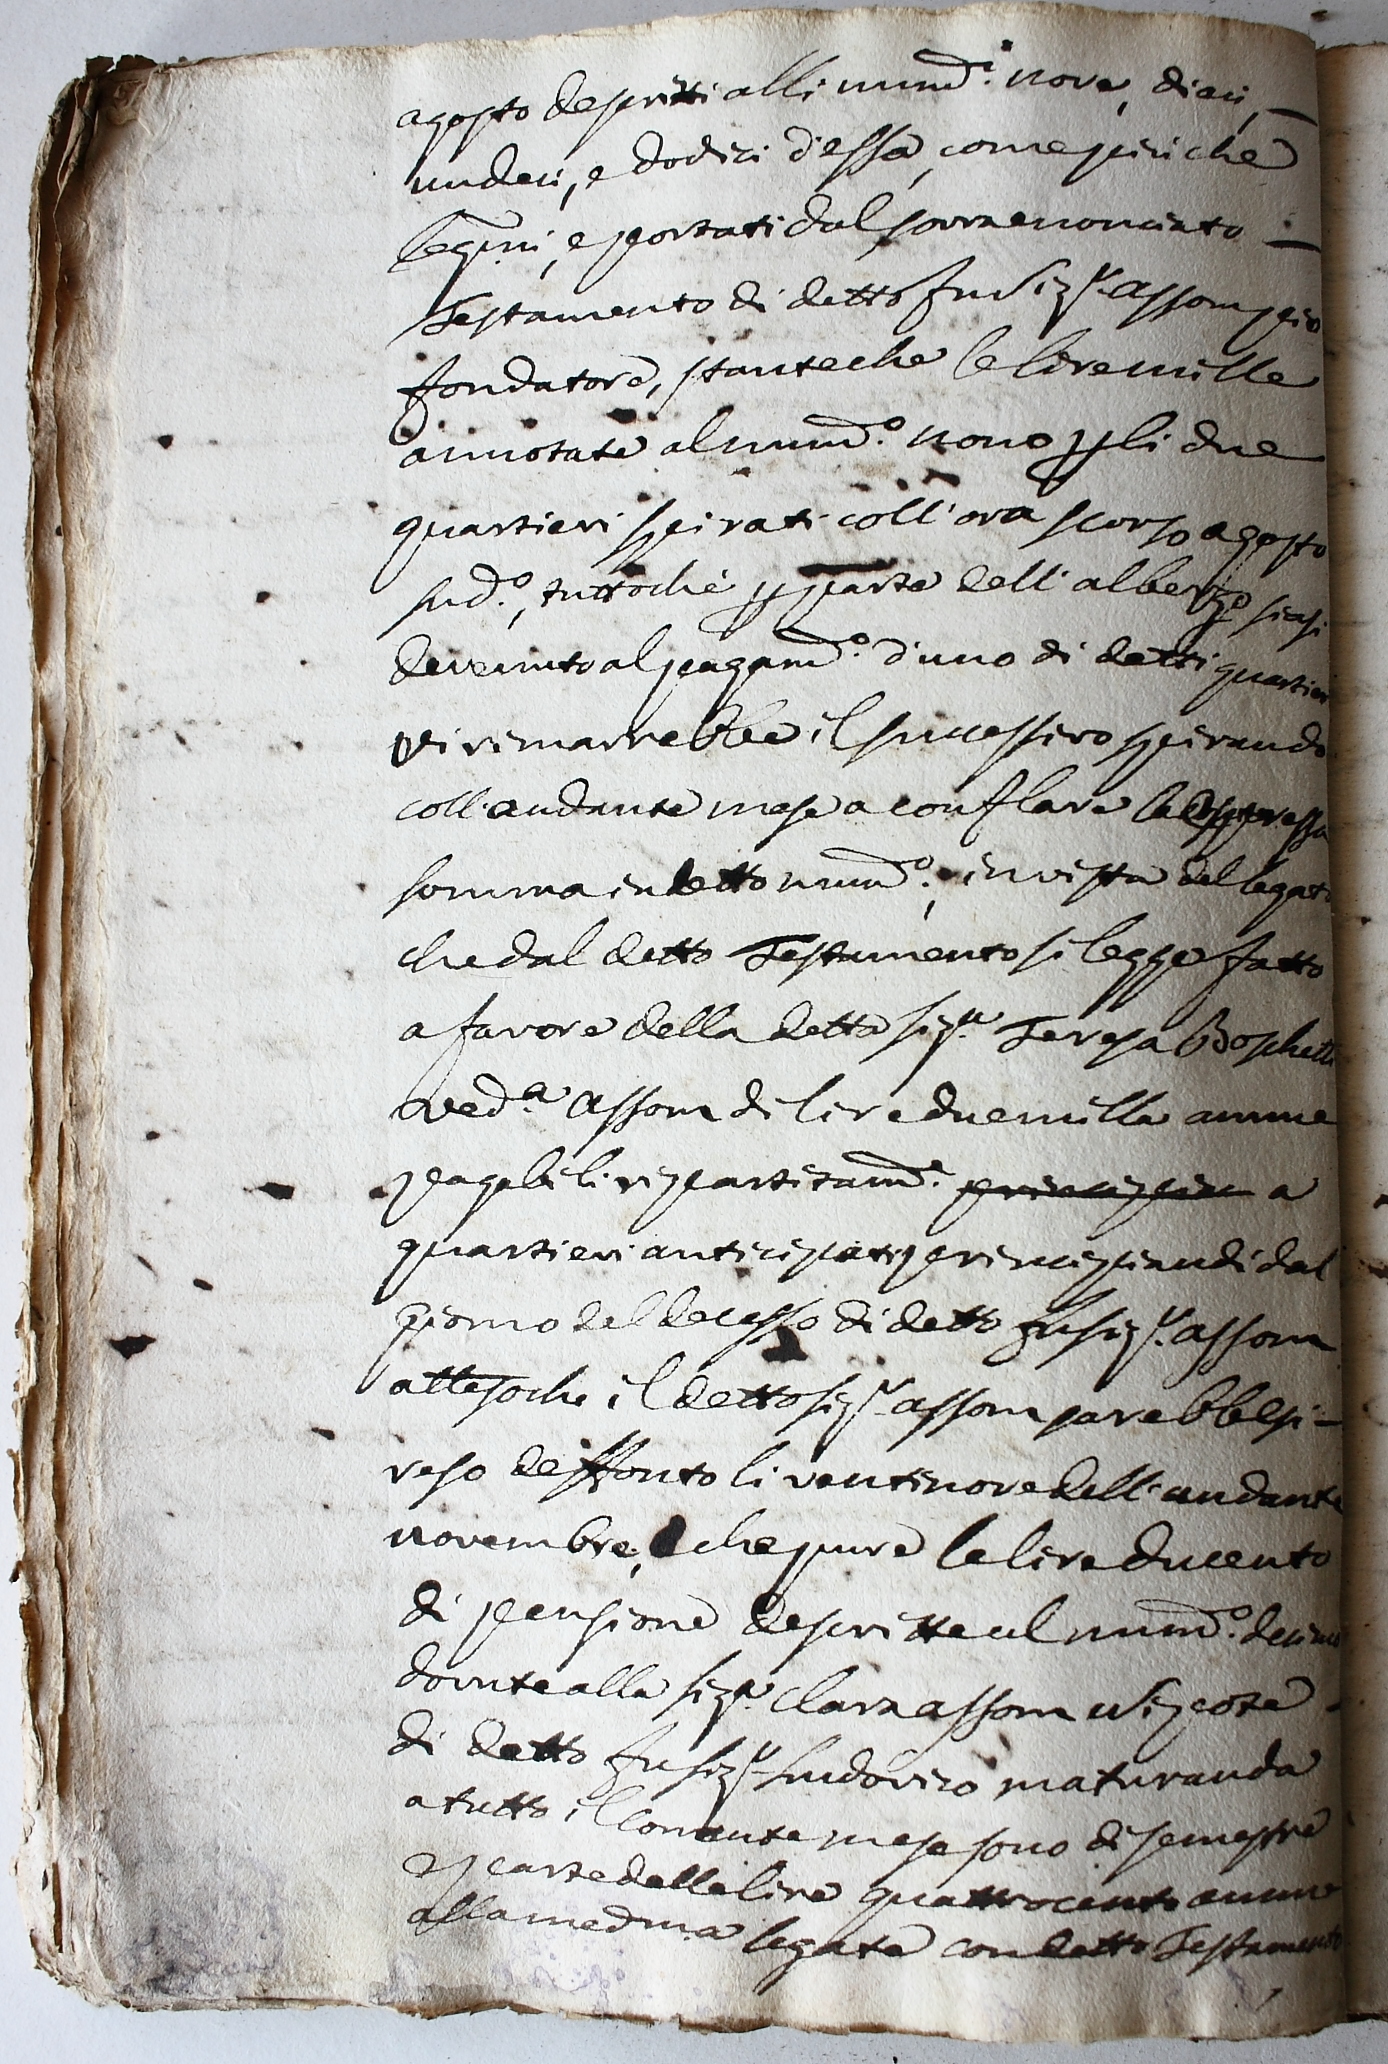 agosto descritti alli num.i nove, dieci,
undeci, e dodici d'essa, come più che
legini, e portati dal sovraenonciato
Testamento di detto fu Sig.r Assom
fondatore, stanteche le lire mille
annotate al num.o nono p li due
quartieri spirati coll'ora scorso agosto
sud.o, tuttoche p parte dell'albergo siasi
devenuto al pagam.o d'uno di detti quartieri
vi rimarrebbe il successivo spirando
coll'andante mese a conflare la espressa
somma in detto num.o, in vista del legato
che dal detto Testamento si legge fatto
a favore della detta sig.a Teresa Boschetti
ved.a Assom di lire duemilla annue
pagabili ripartitam.e principian a
quartieri anticipati principiandi dal
giorno del decesso di detto fu sig.r Assom
attesoche il detto sig.r Assom sarebbesi
reso deffonto li ventinove dell'andante
novembre, che pure le lire ducento
di pensione descritte al num.o decimo
dovute alla sig.a Clara Assom nipote
di detto fu sig.r Ludovico maturanda
a tutto il corrente mese sono di semestre
p parte delle lire quattrocento annue
alla med.ma legate con detto Testamento